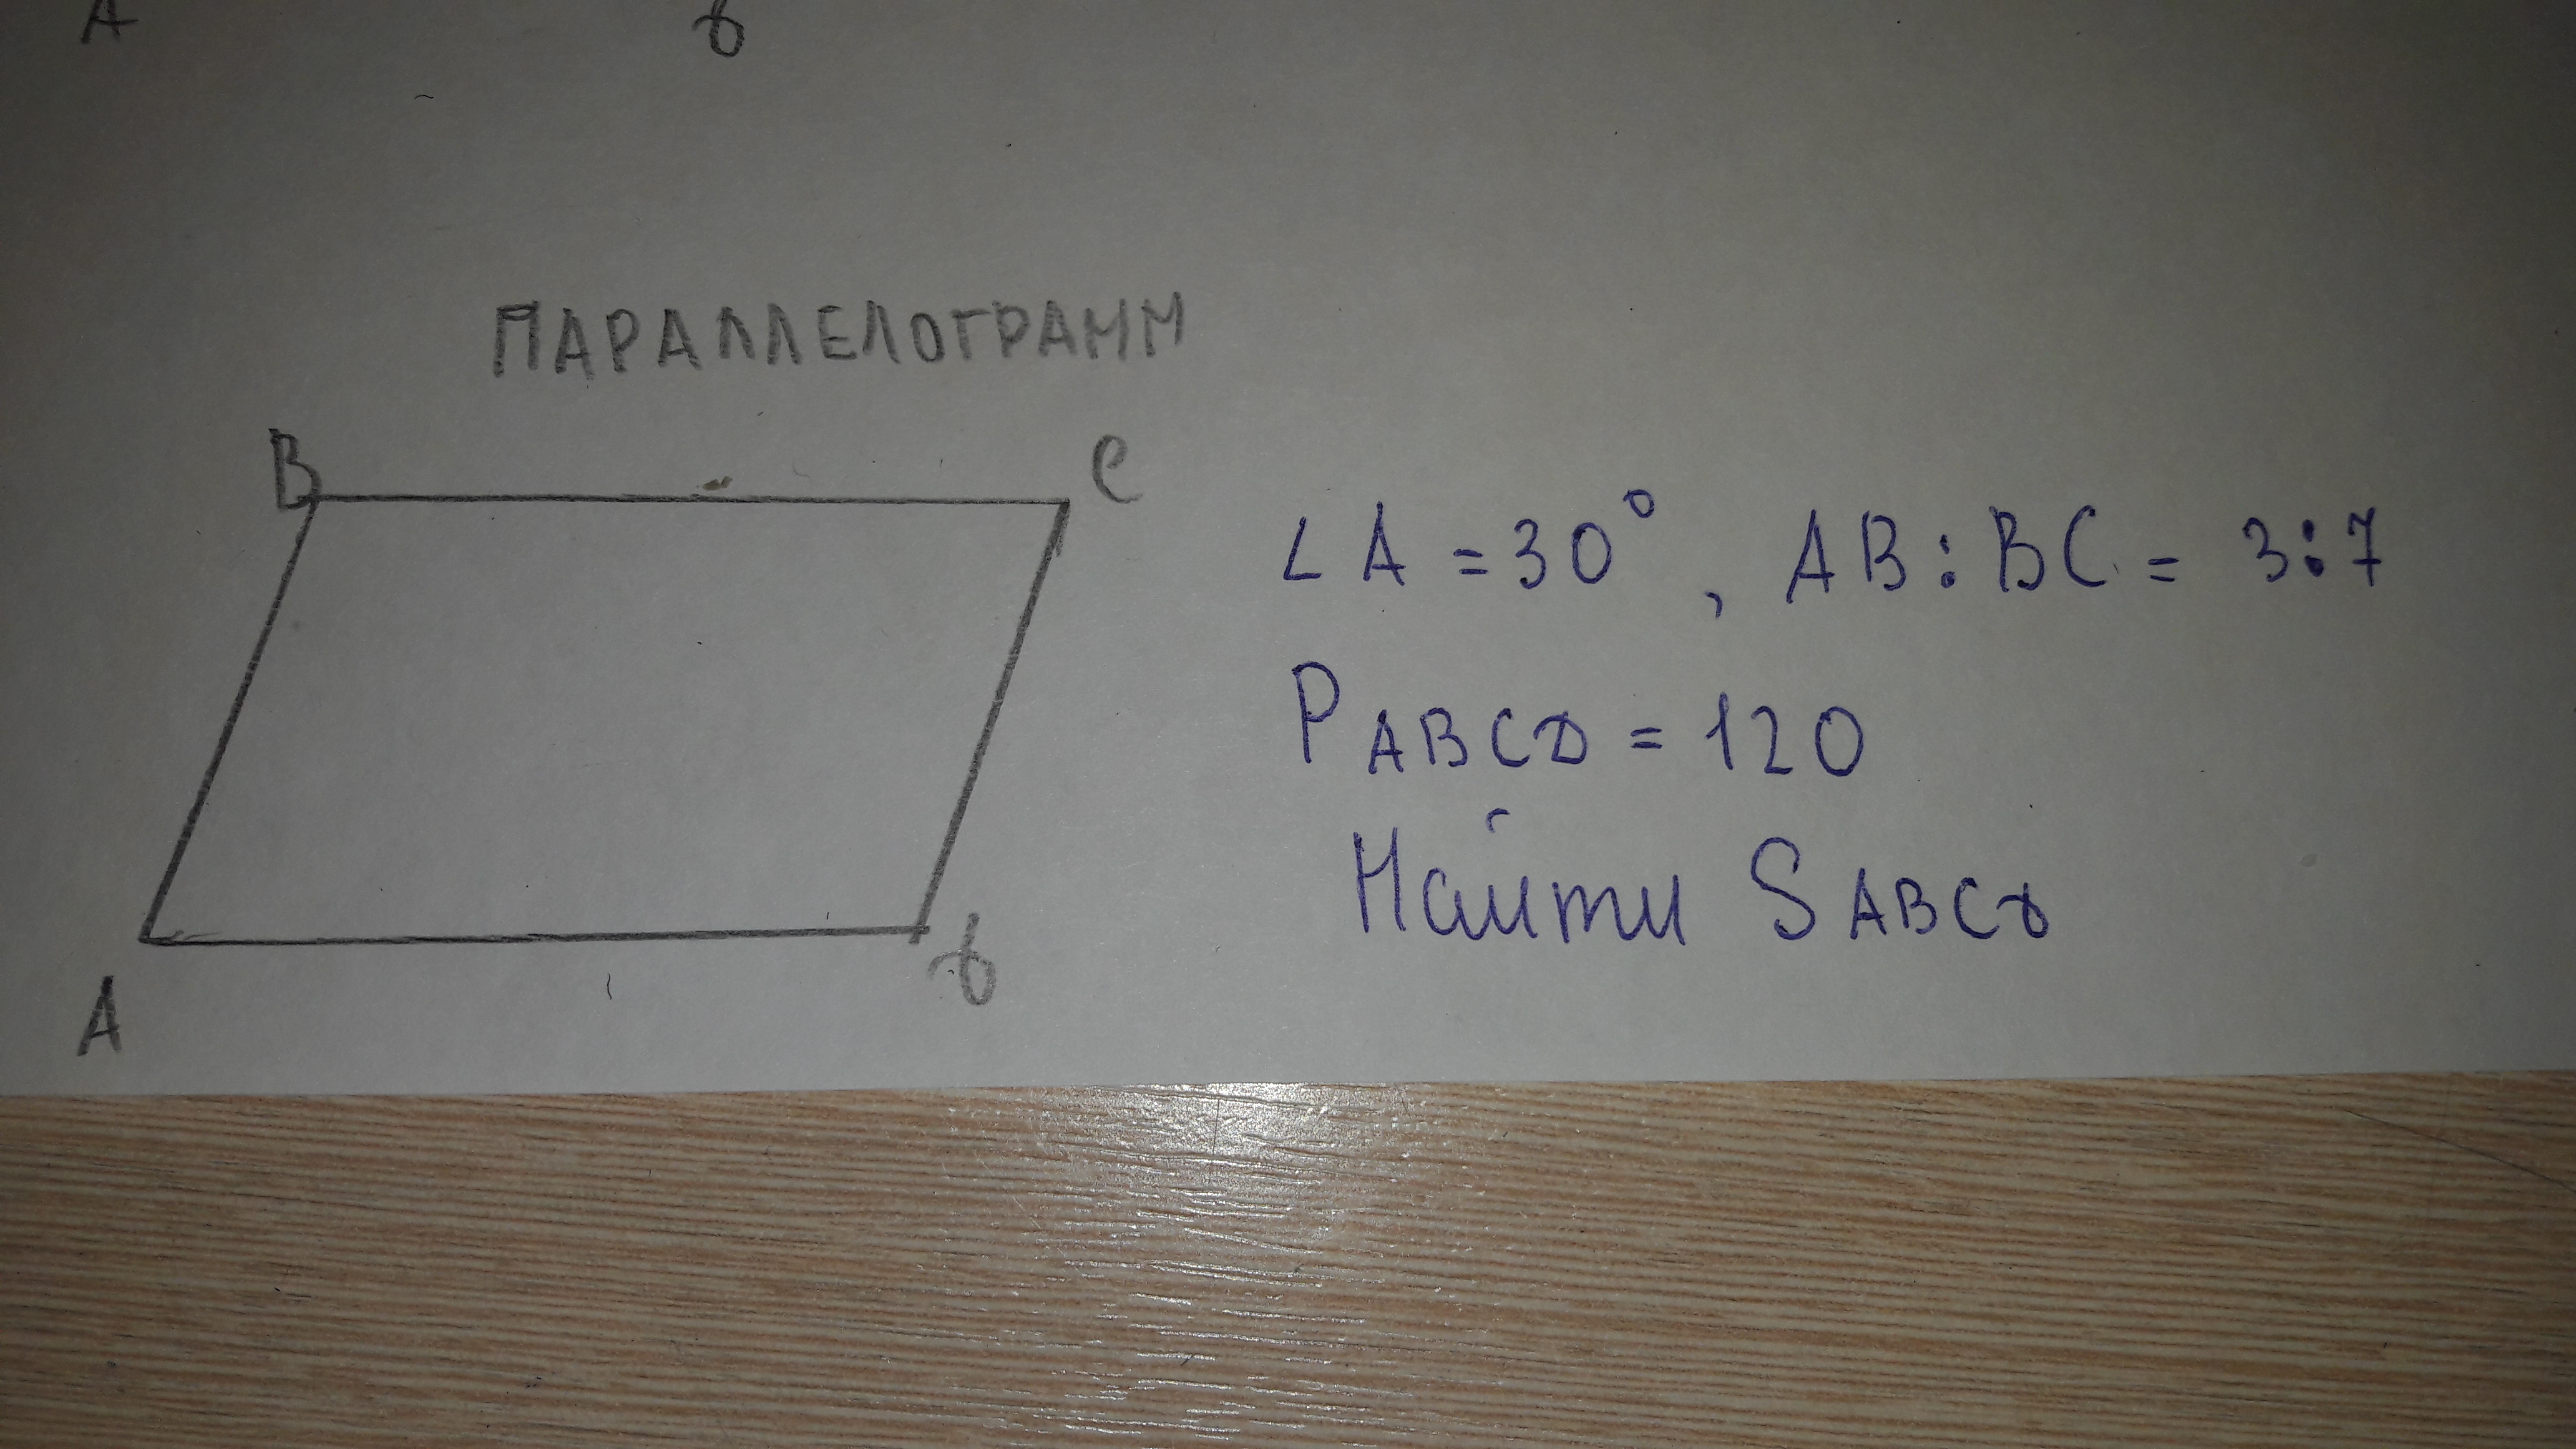 A D
ПАРАЛЛЕЛОГРАММ
B C
∠A = 30°, AB : BC = 3 : 7
P ABCD = 120
Найти S ABCD
A D